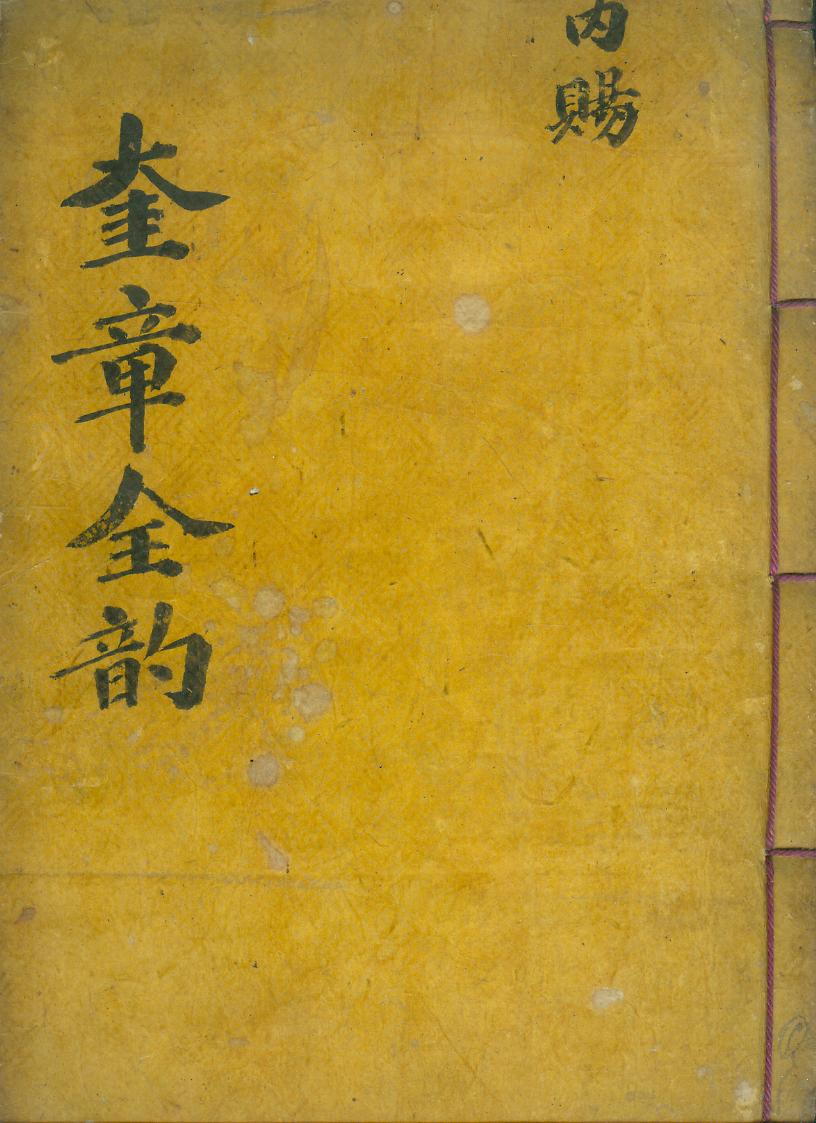 內賜
奎章全韵